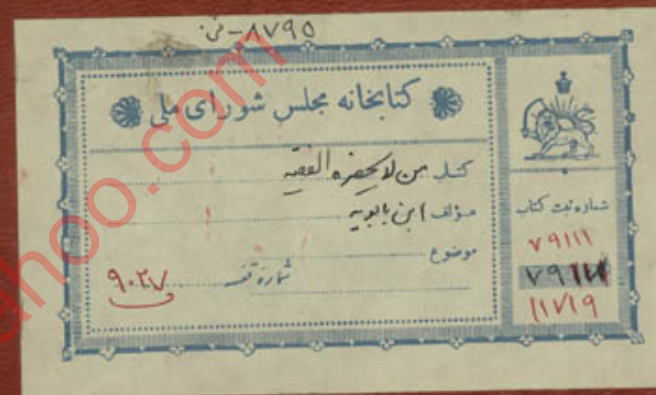 ۸۷۹۵ - ف.
کتابخانه مجلس شورای ملی
کتاب من لا یحضره الفقیه
مؤلف ابن بابویه
موضوع
شماره قفسه ۹۰۲۷
شماره ثبت کتاب
۷۹۱۱۱
۱۱۷۱۹
ahoo.com